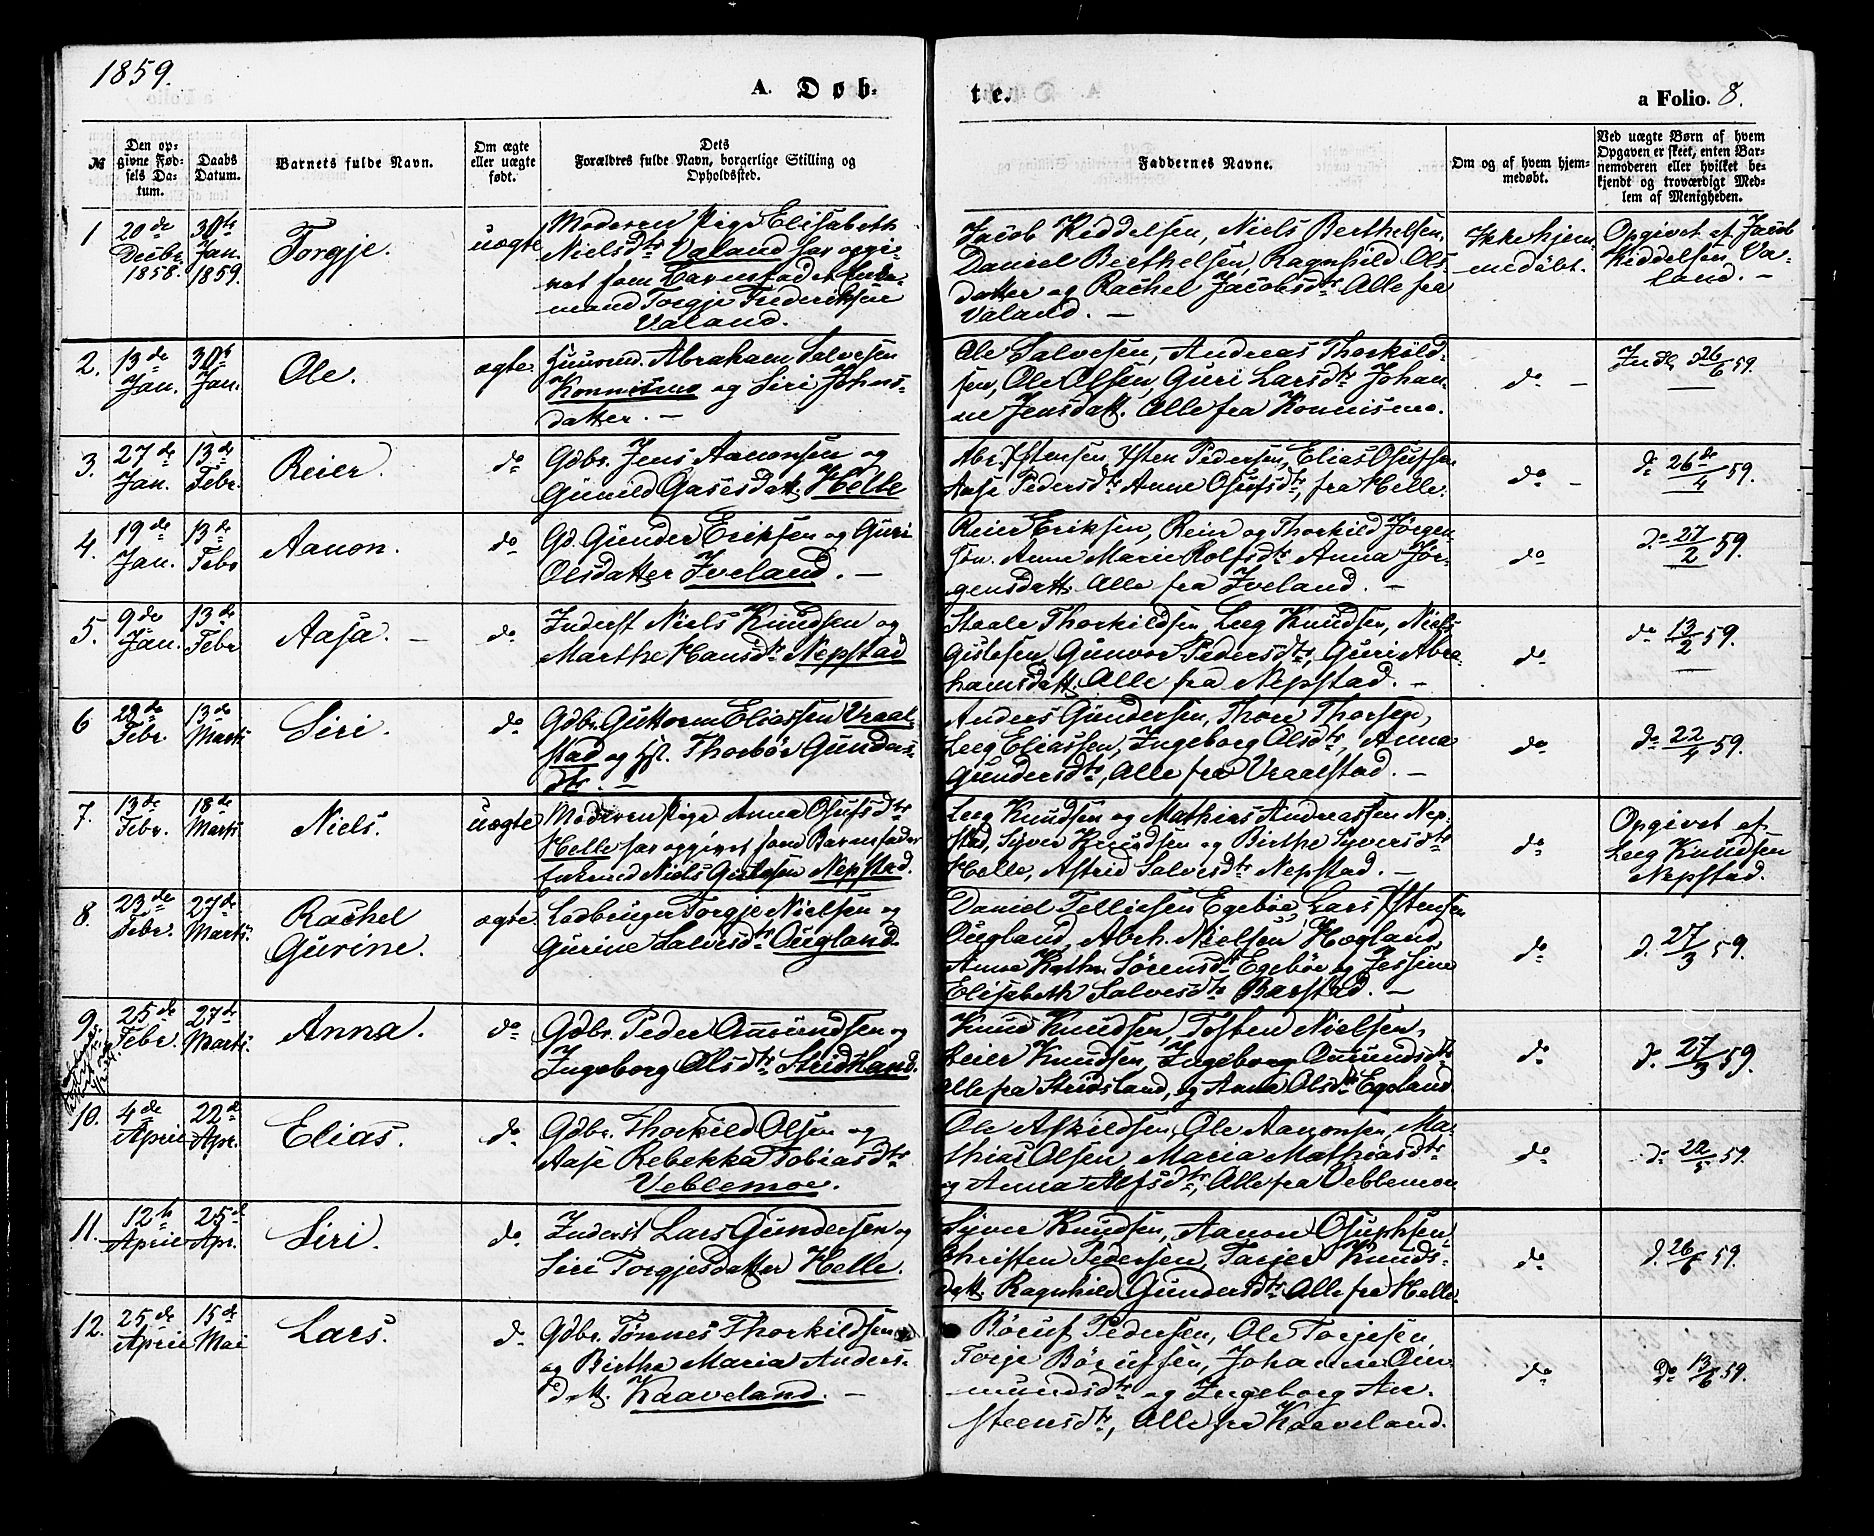 1859.
A. Døb-
te.
a Folio. 8.
№
Den op-
givne Fød-
sels Da-
tum.
Daabs
Datum.
Barnets fulde Navn.
Om ægte
eller uægte
født.
Dets
Forældres fulde Navn, borgerlige Stilling og
Opholdssted.
Faddernes Navne.
Om og af hvem hjem-
medøbt.
Ved uægte Børn af hvem
Opgaven er skeet, enten Bar-
nemoderen eller hvilket be-
kjendt og troværdigt Med-
lem af Menigheden.
1
20de
Decbr
1858.
30te
Jan.
1859.
Torgje.
uægte
Moderen Pige Elisabeth
Nielsdtr Valand har opgi-
vet som Barnefad
mand Torgje Frideriksen
Valand.
Jacob Kiddelsen, Niels Berthelsen,
Daniel Berthelsen, Ragnhild Ols-
datter og Rachel Jacobsdtr Alle fra
Valand. —
Ikke hjem-
medøbt.
Opgivet af Jacob
Kiddelsen, Va-
land. —
2.
13de
Jan.
30te
Jan.
Ole.
ægte
Huusmd. Abraham Salvesen
Konnismo og Siri Johns-
datter. —
Ole Salvesen, Andreas Thorkild-
sen, Ole Olsen, Guri Larsdtr Johan-
ne Jensdatt. Alle fra Konnismo.
do —
Indl 26/6 59.
3.
27de
Jan.
13de
Febr.
Reier.
do
Gdbr. Jens Aanonsen og
Gunild Gasesdatt. Helle
Abr. Østensen, Østen Pedersen, Elias Osufsen
Aase Pedersdtr Anne Osufsdtr, fra Helle.
do —
do 26de/4 59.
4.
19de
Jan.
13de
Febr
Aanon.
do
Gd. Gunder Eriksen og Guri
Olsdatter Iveland. —
Reier Eriksen, Reier og Thorkild Jørgen-
sen. Anne Marie Rolfsdtr Anna Jør-
gensdatt. Alle fra Iveland. —
do
do 27/2 59.
5.
9de
Jan.
13de
Febr
Aasa. —
do
Inderst Niels Knudsen og
Marthe Hansdtr Nepstad
Staale Thorkildsen, Leeg Knudsen, Niels
Gislesen, Gunvor Pedersdtr, Guri Abra-
hamsdatt. Alle fra Nepstad. —
do
do 13/2 59.
6
Febr.
13de
Marts.
Siri.
do
Gdbr. Guttorm Eliassen Vraal-
stad og Hst. Thorbør Gunders-
dtr. —
Anders Gundersen, Thore Thorsen,
Leeg Eliassen, Ingeborg Olsdtr, Anna
Gundersdtr, Alle fra Vraalstad. —
do
do 22/4 59.
7.
13de
Febr.
18de
Marts
Niels.
uægte
Moderen Pige Anna Osufsdtr
Helle har opgivet som Barnefader
Enkemd Niels Gislesen Nepstad.
Leeg Knudsen og Mathias Andreassen Nep-
stad, Syver Knudsen og Birthe Syversdtr
Helle, Astrid Salvesdtr Nepstad. —
do
Opgivet af
Leeg Knudsen
Nepstad.
8.
23de
Febr.
27de
Marts.
Rachel
Gurine.
ægte
Ladbruger Torgje Nielsen og
Gurine Salvesdtr Øugland.
Daniel Tellefsen Egebøe, Lars Østensen
Øugland, Abrh. Nielsen Høgland,
Anne Kathr. Sørensdtr Egebøe og Jessine
Elisabeth Salvesdtr Barstad. —
do
d. 27/3 59.
9.
25de
Febr.
27de
Marts.
Anna.
do
Gdbr. Peder Omundsen og
Ingeborg Olsdtr Stridsland.
Knud Knudsen, Tosten Nielsen,
Reier Knudsen, Ingeborg Omundsdtr
Alle fra Stridsland, og Anna Olsdtr Egeland
do
do 27/3 59.
10.
4de
April
22de
Apr.
Elias.
do
Gdbr. Thorkild Olsen og
Aase Rebekka Tobiasdtr
Veblemoe.
Ole Askildsen, Ole Aanonsen, Ma-
thias Olsen, Maria Mathiasdtr
og Anna Alfsdtr, Alle fra Veblemoe
do
do 22/5 59.
11.
12te
April
25de
Apr.
Siri.
do
Inderst Lars Gundersen og
Siri Torgjesdatter Helle.
Syver Knudsen, Aanon Osuphsen,
Christen Pedersen, Tarjer Knuds-
datt. Ragnhild Gundersdtr Alle fra Helle.
do
d. 26/6 59.
12.
25de
April
15de
Mai
Lars.
do
Gdbr. Tønnes Thorkildsen
og Birthe Maria Anders-
datt. Kaaveland. —
Børuf Pedersen, Ole Torjesen
Torje Børufsen, Johanne Om-
mundsdtr og Ingeborg An-
steensdtr, Alle fra Kaaveland.
do
do 13/6 59.